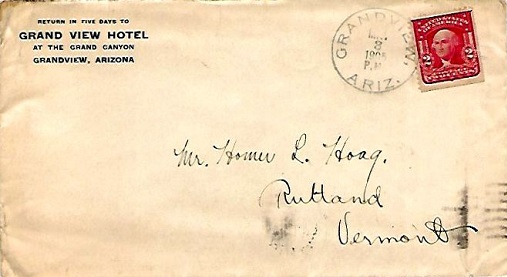 RETURN IN FIVE DAYS TO
GRAND VIEW HOTEL
AT THE GRAND CANYON
GRANDVIEW, ARIZONA
GRANDVIEW,
P.M
ARIZ.
2 2
Mr. Homer L. Hoag.
Rutland
Vermont